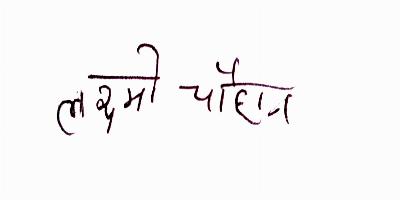 लक्ष्मी चौहान